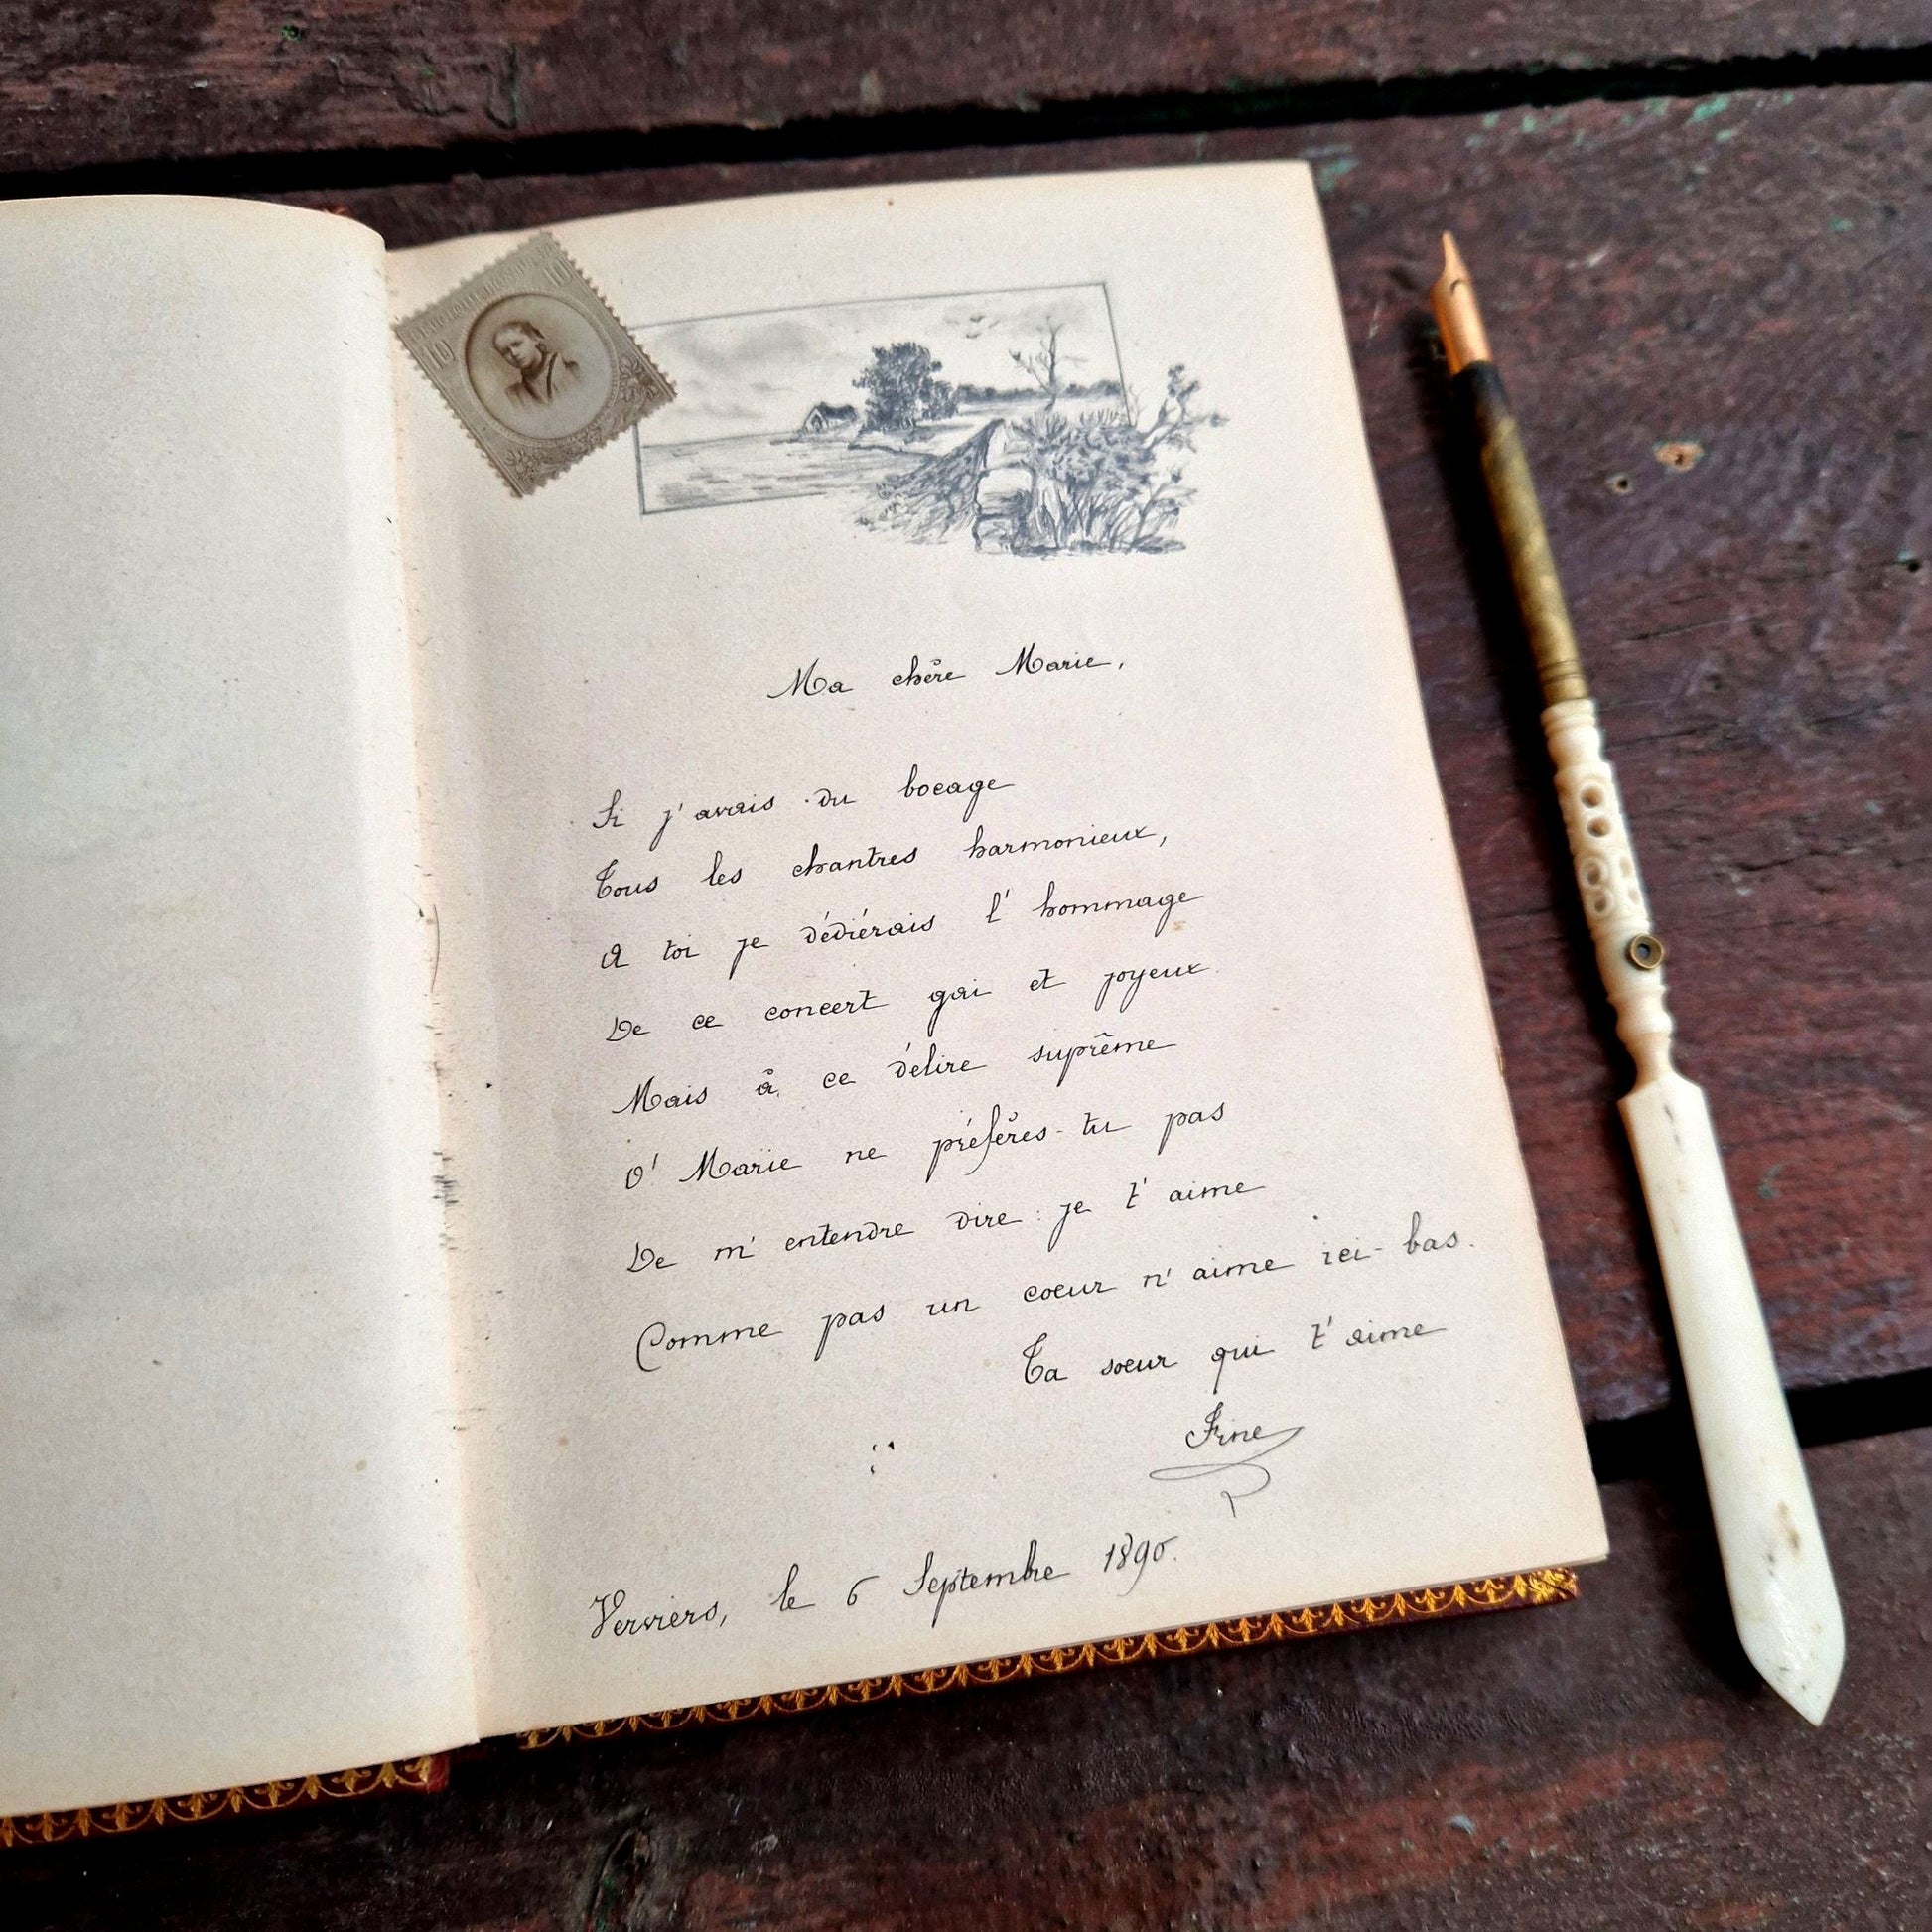 10
10
Ma chère Marie,
Si j'avais du bocage
Tous les chantres harmonieux,
A toi je dédiérais l'hommage
De ce concert gai et joyeux.
Mais à ce délire suprême
O' Marie ne préfères-tu pas
De m'entendre dire : je t'aime
Comme pas un coeur n'aime ici-bas.
Ta soeur qui t'aime
Fine
Verviers, le 6 Septembre 1890.